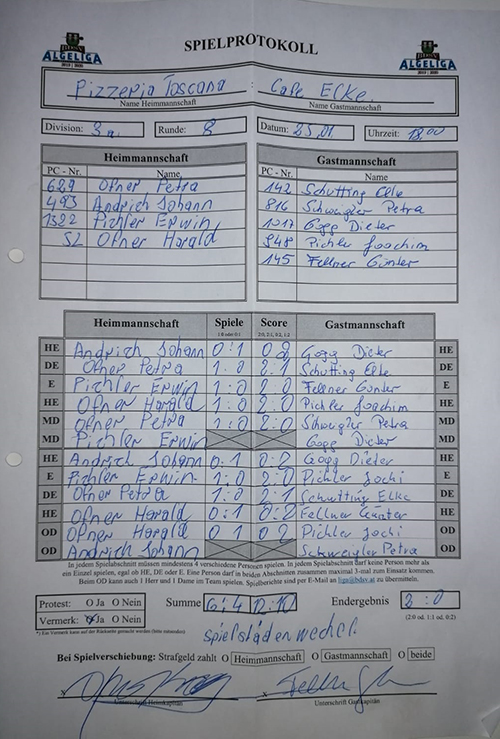 BDSV
ALGELIGA
2019 | 2020
SPIELPROTOKOLL
BDSV
ALGELIGA
2019 | 2020
Pizzeria Toscana : Cafe Ecke
Name Heimmannschaft Name Gastmannschaft
Division: 3 Runde: 8 Datum: 25.01 Uhrzeit: 18.00
Heimmannschaft Gastmannschaft
PC - Nr. Name PC - Nr. Name
629 Ofner Petra 142 Schutting Elke
493 Andrich Johann 816 Schweigler Petra
1322 Pichler Erwin 1017 Gogg Dieter
52 Ofner Harald 948 Pichler Joachim
145 Fellner Günter
Heimmannschaft Spiele Score Gastmannschaft
1:0 oder 0:1 2:0, 2:1, 0:2, 1:2
HE Andrich Johann 0:1 0:2 Gogg Dieter HE
DE Ofner Petra 1:0 2:1 Schutting Elke DE
E Pichler Erwin 1:0 2:0 Fellner Günter E
HE Ofner Harald 1:0 2:0 Pichler Joachim HE
MD Ofner Petra 1:0 2:0 Schweigler Petra MD
MD Pichler Erwin Gogg Dieter MD
HE Andrich Johann 0:1 0:2 Gogg Dieter HE
E Pichler Erwin 1:0 2:0 Pichler Jochi E
DE Ofner Petra 1:0 2:1 Schutting Elke DE
HE Ofner Harald 0:1 0:2 Fellner Günter HE
OD Ofner Harald 0:1 0:2 Pichler Jochi OD
OD Andrich Johann Schweigler Petra OD
In jedem Spielabschnitt müssen mindestens 4 verschiedene Personen spielen. In jedem Spielabschnitt darf keine Person mehr als
ein Einzel spielen, egal ob HE, DE oder E. Eine Person darf in beiden Abschnitten zusammen maximal 3-mal zum Einsatz kommen.
Beim OD kann auch 1 Herr und 1 Dame im Team spielen. Spielberichte sind per E-Mail an liga@bdsv.at zu übermitteln.
Protest: O Ja O Nein Summe 6:4 12:10 Endergebnis 2:0
Vermerk: O Ja O Nein (2:0 od. 1:1 od. 0:2)
*) Ein Vermerk kann auf der Rückseite gemacht werden (bitte umwenden)
Spielstädtenwechsel.
Bei Spielverschiebung: Strafgeld zahlt O Heimmannschaft O Gastmannschaft O beide
x x
Unterschrift Heimkapitän Unterschrift Gastkapitän